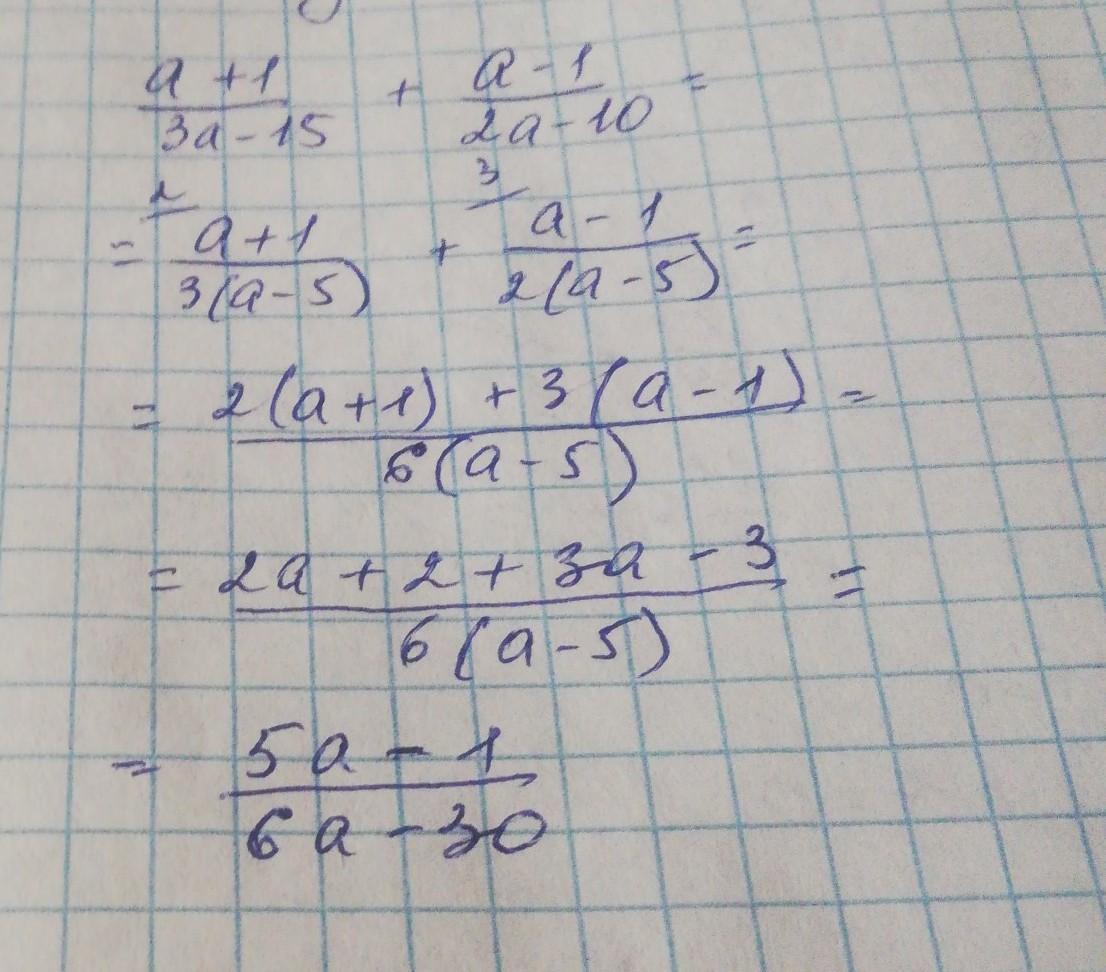 (a + 1)/(3a - 15) + (a - 1)/(2a - 10) =
= 2 (a + 1)/(3(a - 5)) + 3 (a - 1)/(2(a - 5)) =
= (2(a + 1) + 3(a - 1))/(6(a - 5)) =
= (2a + 2 + 3a - 3)/(6(a - 5)) =
= (5a - 1)/(6a - 30)